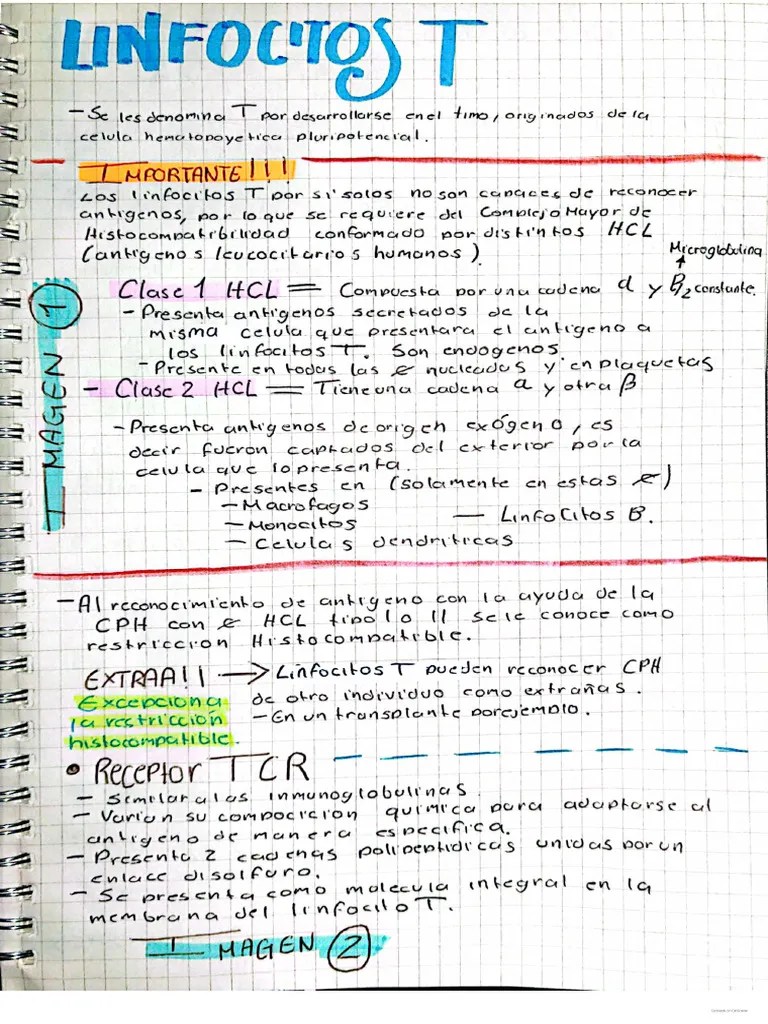 LINFOCITOS T
- Se les denomina T por desarrollarse en el timo, originados de la
celula hematopoyetica pluripotencial.
IMPORTANTE!!!
Los linfocitos T por si solos no son capaces de reconocer
antigenos, por lo que se requiere del Complejo Mayor de
Histocompatibilidad conformado por distintos HCL
(antigenos leucocitarios humanos).
Microglobulina
Clase 1 HCL = Compuesta por una cadena α y β/2 constante.
- Presenta antigenos secretados de la
misma celula que presentara el antigeno a
los linfocitos T. Son endogenos
- Presente en todas las nucleados y en plaquetas
- Clase 2 HCL = Tiene una cadena α y otra β
- Presenta antigenos de origen exógeno, es
decir fueron captados del exterior por la
celula que lo presenta.
- Presentes en (solamente en estas )
- Macrofagos
- Monocitos — Linfocitos B.
- Celulas dendriticas
IMAGEN 1
- Al reconocimiento de antigeno con la ayuda de la
CPH con HCL tipo I o II se le conoce como
restriccion Histocompatible.
EXTRAA!! → Linfocitos T pueden reconocer CPH
de otro individuo como extrañas.
- En un transplante por ejemplo.
Excepcion a
la restricción
histocompatible.
• Receptor TCR
- Similar a las inmunoglobulinas.
- Varian su compocicion quimica para adaptarse al
antigeno de manera especifica.
- Presenta 2 cadenas polipeptidicas unidas por un
enlace disolfuro.
- Se presenta como molecula integral en la
membrana del linfocito T.
IMAGEN 2